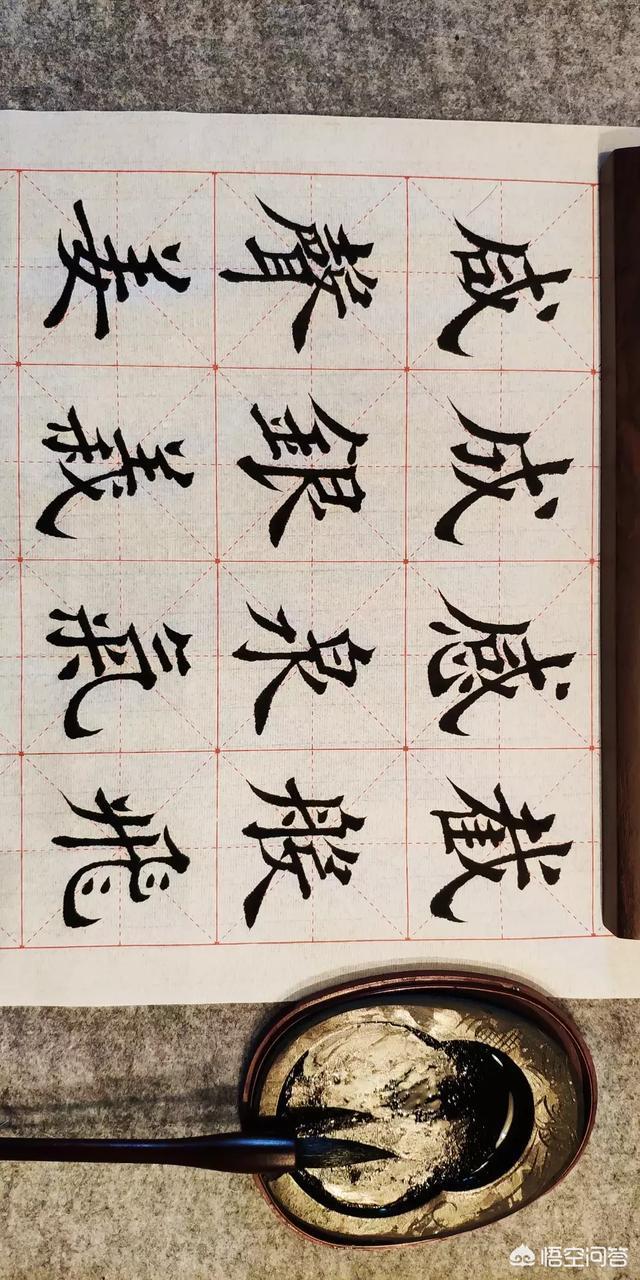 咸成感截
聲銀泉般
姜義氣飛
悟空问答